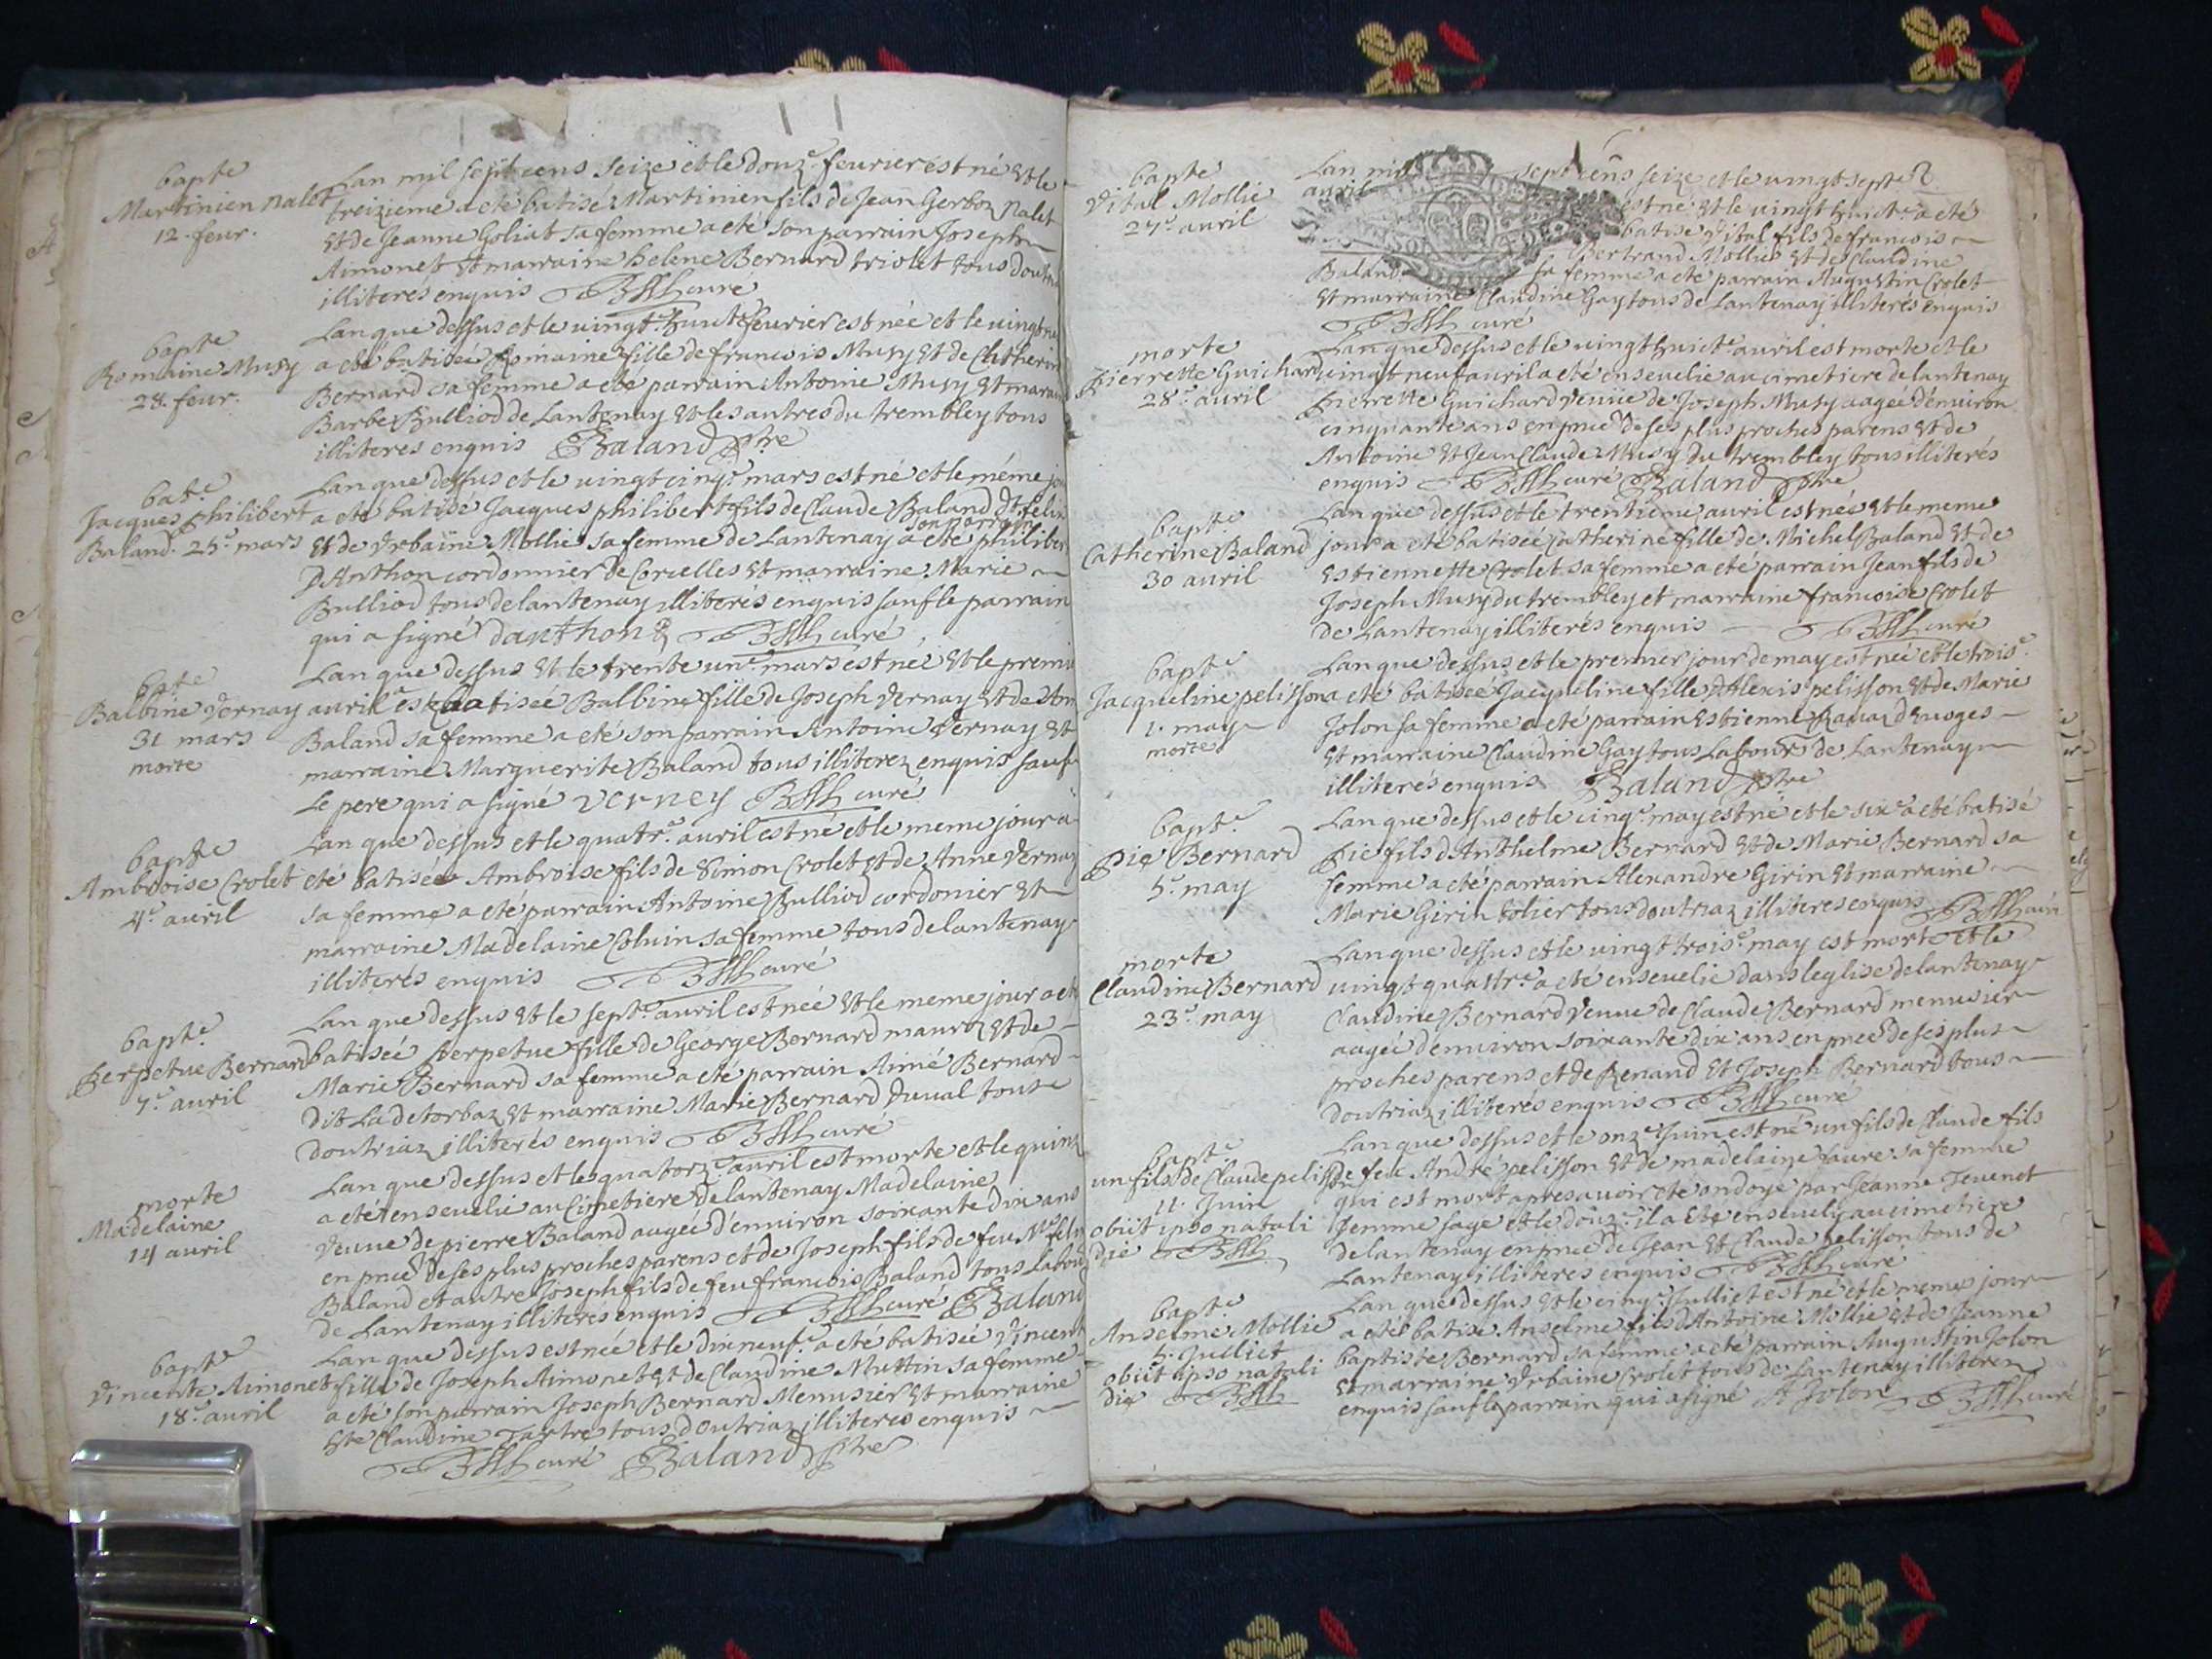 bapte
Martinien nalet
12. feur.
Lan mil sept cens seize et le douze feurier est né et le
treizieme a eté batisé Martinien fils de Jean Gerboz nalet
et de Jeanne Goliat sa femme a eté son parrain Joseph
Aimonet et marraine helene Bernard triolet tous
illiterés enquis curé
bapte
Romaine Musy
28. feur.
Lan que dessus et le uingt huict feurier est née et le uingt
a eté batisée Romaine fille de francois Musy et de Catherin
Bernard sa femme a eté parrain Antoine Musy et
Barbe Bulliod de Lantenay et les autres du trembley tous
illiteres enquis Baland ptre
bate
Jacques Philibert
Baland. 25e mars
Lan que dessus et le uingt cinqe mars est né et le méme
a eté batisé Jacques philibert fils de Claude Baland
et de Vrbaine Mollie sa femme de Lantenay a eté son parrain
DAnthon cordonnier de Corcelles et marraine Marie
Bulliod tous de lantenay illiterés enquis sauf le parrain
qui a signé danthon curé
bapte
Balbine Vernay
31 mars
morte
Lan que dessus et le trente une mars est née et le premie
auril a batisée Balbine fille de Joseph Vernay et de
Baland sa femme a eté son parrain Antoine Vernay et
marraine Marguerite Baland tous illiterez enquis sauf
Le pere qui a signé verney curé
bapte
Ambroise Crolet
4e auril
Lan que dessus et le quatre auril est né et le meme jour a
eté batisé Ambroise fils de Simon Crolet et de Anne Vernay
sa femme a eté parrain Antoine Bulliod cordonier et
marraine Madelaine Coluin sa femme tous de lantenay
illiterés enquis curé
bapte
Perpetue Bernard
7e auril
Lan que dessus et le septe auril est née et le meme jour a eté
batisée Perpetue fille de George Bernard mauroz et de
Marie Bernard sa femme a eté parrain Aimé Bernard
dit La detorbaz et marraine Marie Bernard duual tous
doutriaz illiterés enquis curé
morte
Madelaine
14 auril
Lan que dessus et le quatorze auril est morte et le quinz
a eté enseuelie au Cimetiere de lantenay Madelaine
veuue de pierre Baland aagée d'enuiron soixante dix ans
en pnce de ses plus proches parens et de Joseph fils de feu
Baland et autre Joseph fils de feu francois Baland tous
de Lantenay illiteres enquis curé Baland
bapte
Vincente Aimonet
18e auril
Lan que dessus est née et le dixneufe a eté batisée Vincent
fille de Joseph Aimonet et de Claudine Muttin sa femme
a eté son parrain Joseph Bernard Menusier et marraine
Claudine tous doutriaz illiteres enquis
curé Baland ptre
bapte
Vital Mollie
27e auril
Lan mil sept cens seize et le uingt septe
auril est né et le uingt huicte a eté
batisé Vital fils de francois
Bertrand Mollie et de Claudine
Baland sa femme a eté parrain Augustin Crolet
et marraine Claudine Gay tous de Lantenay illiterés enquis
curé
morte
Pierrette Guichard
28e auril
Lan que dessus et le uingt huicte auril est morte et le
uingt neuf auril a eté enseuelie au cimetiere de lantenay
Pierrette Guichard veuue de Joseph Musy aagée d'enuiron
cinquante ans en pnce de ses plus proches parens et de
Antoine et Jean Claude Musy du trembley tous illiterés
enquis curé Baland ptre
bapte
Catherine Baland
30 auril
Lan que dessus et le trentieme auril est née et le meme
jour a eté batisée Catherine fille de Michel Baland et de
Estiennette Crolet sa femme a eté parrain Jean fils de
Joseph Musy du trembley et marraine francoise Crolet
de Lantenay illiterés enquis curé
bapte
Jacqueline pelisson
1. may
morte
Lan que dessus et le premier jour de may est née et le troise
a eté batisée Jacqueline fille d'Alexis pelisson et de Marie
Jolon sa femme a eté parrain Estienne Rauaz
et marraine Claudine Gay tous Labours de Lantenay
illiterés enquis Baland ptre
bapte
Pie Bernard
5e may
Lan que dessus et le cinqe may est né et le sixe a eté batisé
Pie fils dAnthelme Bernard et de Marie Bernard sa
femme a eté parrain Alexandre Girin et marraine
Marie Girin tolier tous doutriaz illiteres enquis curé
morte
Claudine Bernard
23e may
Lan que dessus et le uingt troise may est morte et le
uingt quattre a eté enseuelie dans leglise de lantenay
Claudine Bernard Veuue de Claude Bernard menusier
aagée denuiron soixante dix ans en pnce de ses plus
proches parens et de Renand et Joseph Bernard tous
doutriaz illiterés enquis curé
bapte
un fils de Claude pelisson
11. Juin
obiit ipso natali
die
Lan que dessus et le onze Juin est né un fils de Claude fils
de feu André pelisson et de madelaine faure sa femme
qui est mort apres auoir eté ondoyé par Jeanne Teuenet
femme sage et le douze il a eté enseuely au cimetiere
de lantenay en pnce de Jean et Claude pelisson tous de
Lantenay illiteres enquis curé
bapte
Anselme Mollie
5. Julliet
obiit ipso natali
die
Lan que dessus et le cinqe Julliet est né et le meme jour
a eté batisé Anselme fils dAntoine Mollie et de Jeanne
baptiste Bernard sa femme a eté parrain Augustin Jolon
et marraine Vrbaine Crolet tous de Lantenay illiterez
enquis sauf le parrain qui a signé A Jolon curé